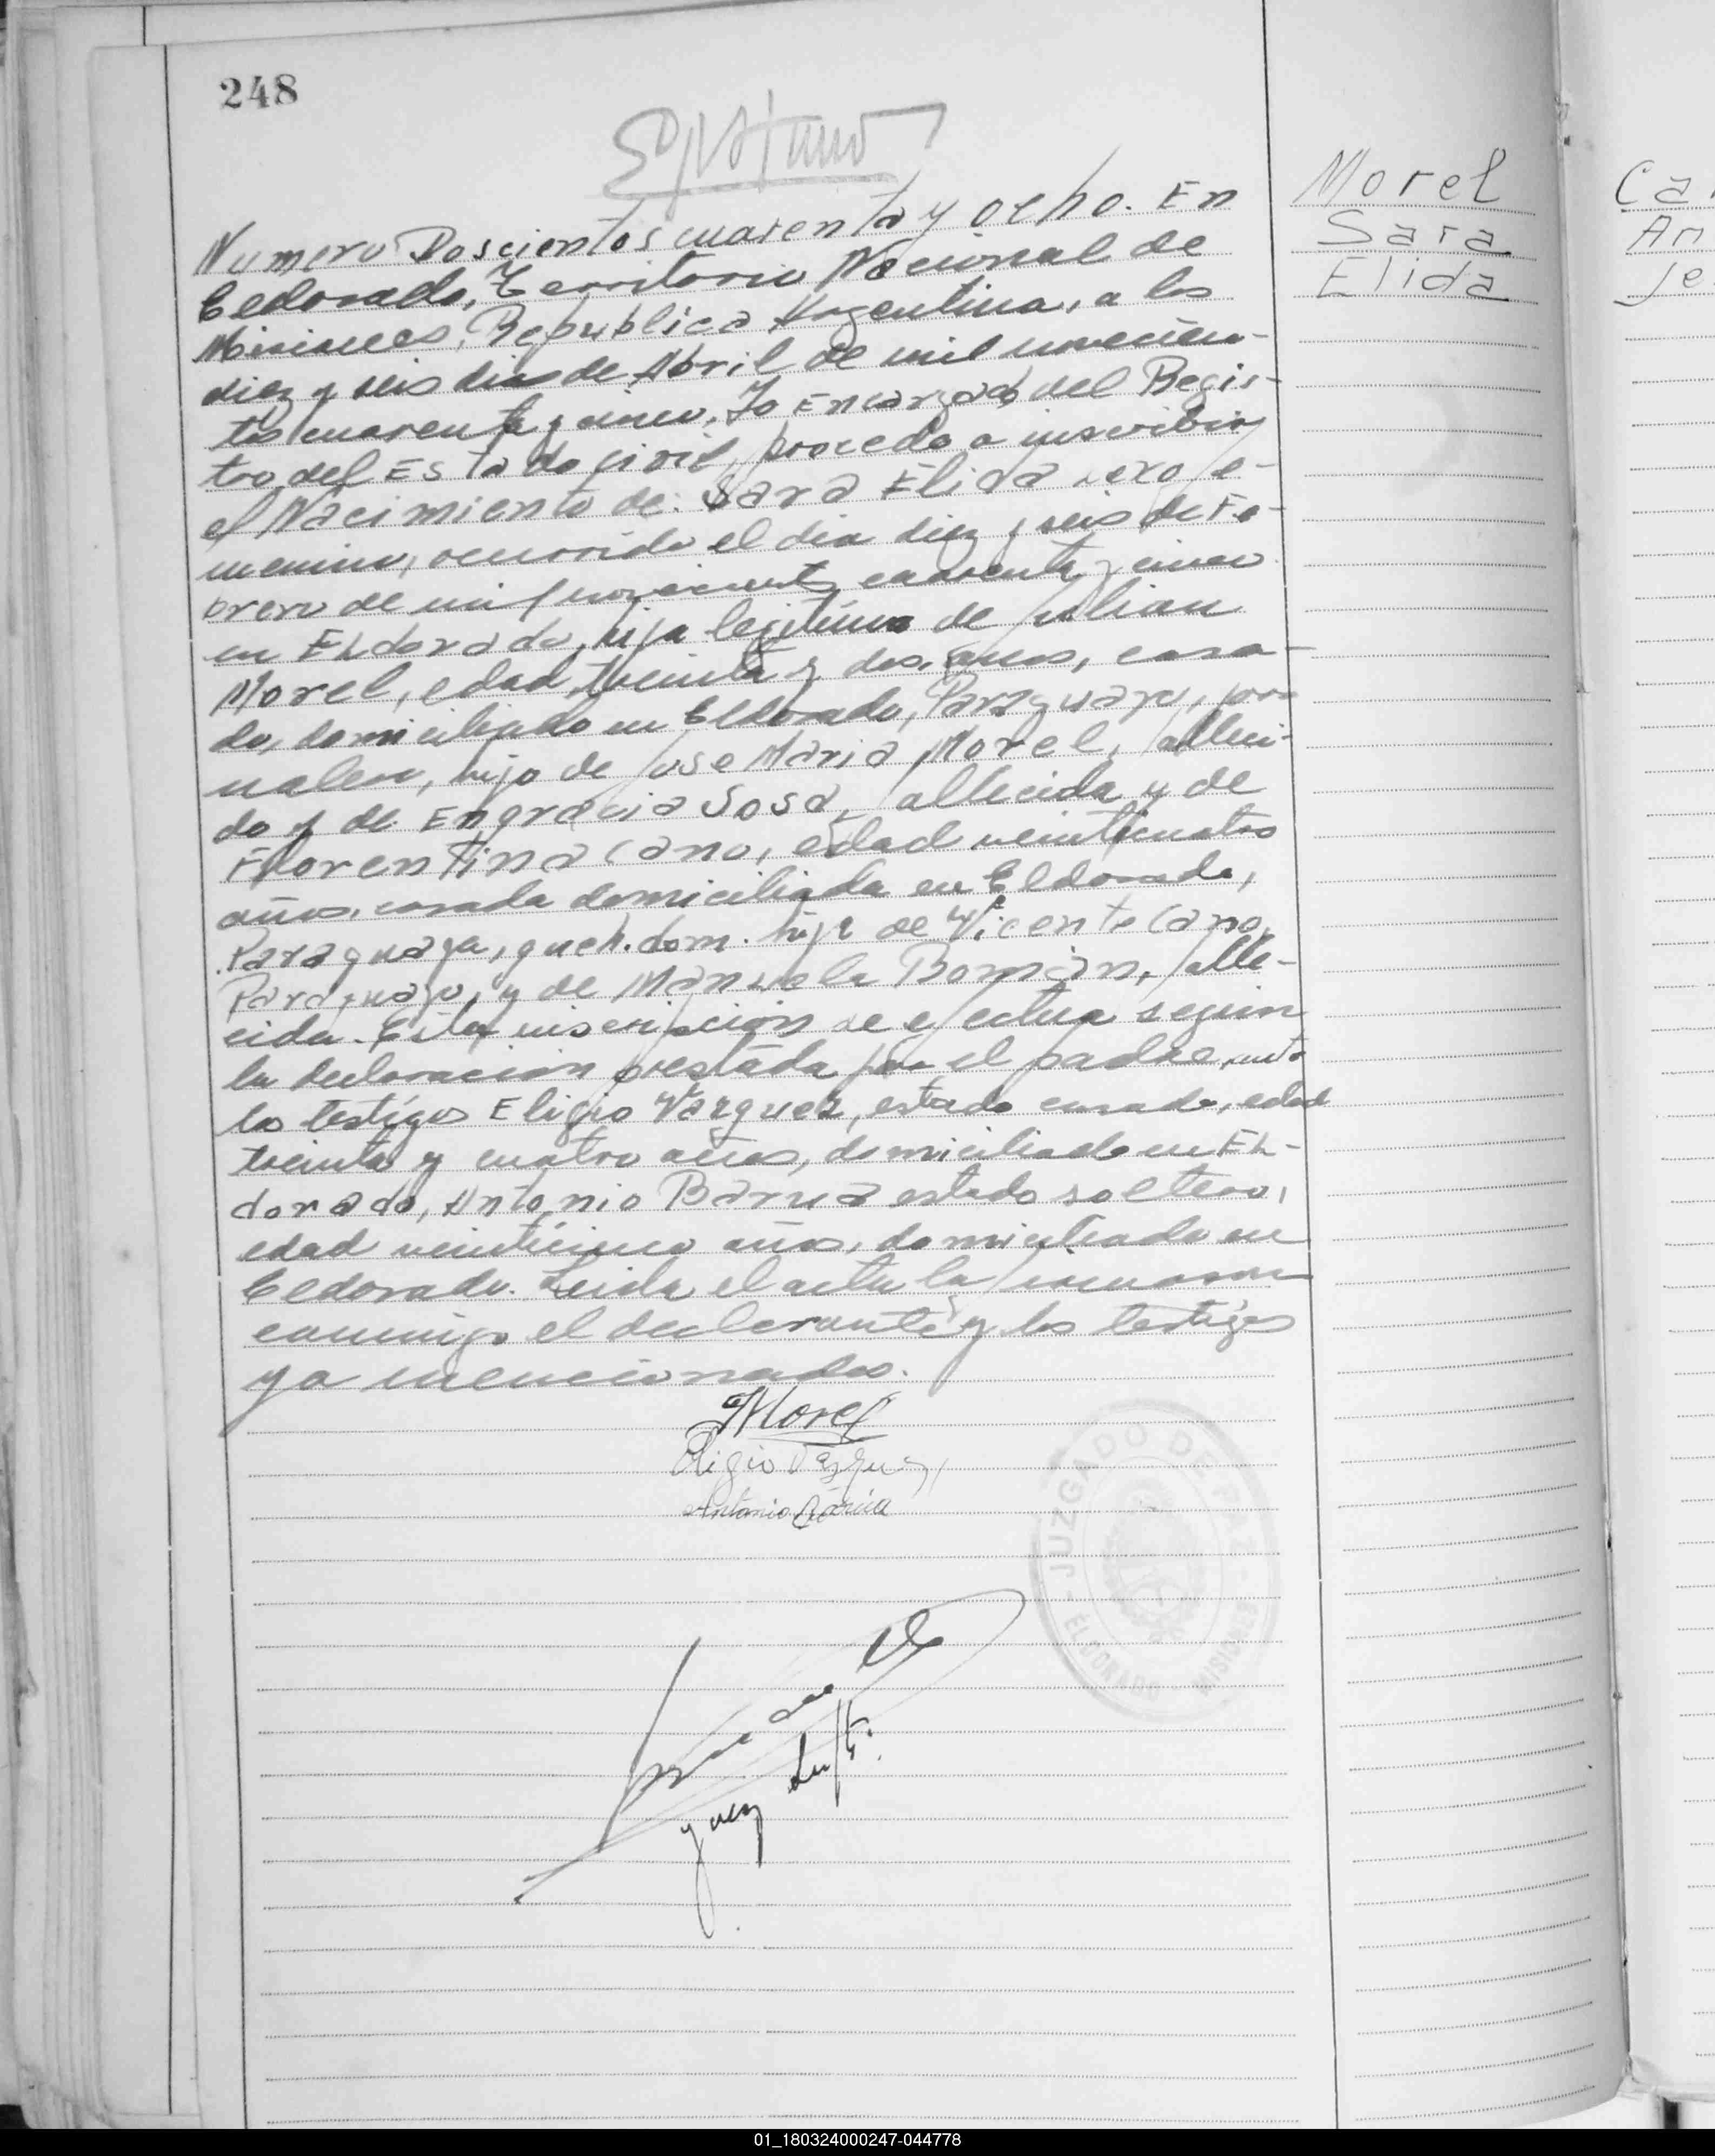 248
Morel
Sara
Elida
Numero Doscientos cuarenta y ocho. En
Eldorado, Territorio Nacional de
Misiones, Republica Argentina, a los
diez y seis dias de Abril de mil novecien-
tos cuarenta y cinco. Yo Encargado del Regis-
tro del Estado civil, procedo a inscribir
el Nacimiento de: Sara Elida sexo fe-
menino, ocurrido el dia diez y seis de Fe-
brero de mil novecientos cuarenta y cinco
en ELdorado, hija legitima de Julian
Morel, edad treinta y dos años, casa-
do, domiciliado en Eldorado, Paraguayo, jor-
nalero, hijo de Jose Maria Morel, falleci-
do y de Engracia Sosa, fallecida y de
Florentina Cano, edad veinticuatro
años, casada domiciliada en Eldorado,
Paraguaya, queh. dom. hija de Vicente Cano,
Paraguayo, y de Manuela Roman, falle-
cida. Esta inscripcion se efectua segun
la declaracion prestada por el padre, ante
los testigos Eligio Vazquez, estado casado, edad
treinta y cuatro años, domiciliado en EL-
dorado, Antonio Barua estado soltero,
edad veinticinco años, domiciliado en
Eldorado. Leida el acta la firmaron
conmigo el declarante y los testigos
ya mencionados.
Morel
Eligio Vazquez
Antonio Barua
JUZGADO DE PAZ
ELDORADO MISIONES
Juez
Ca
An
Je
01_180324000247-044778